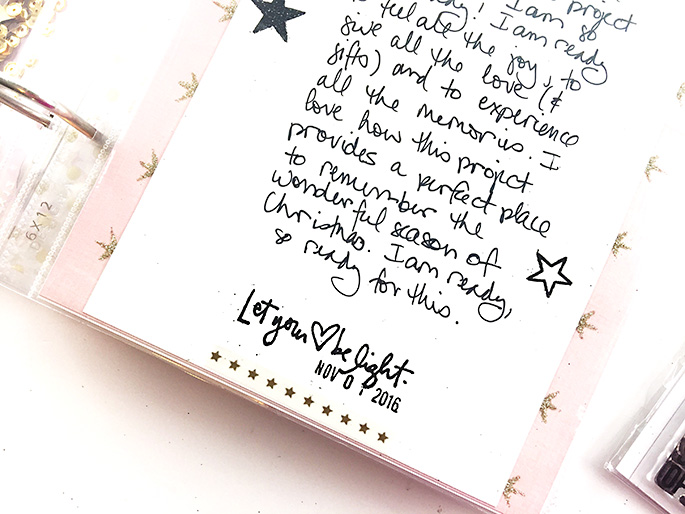 project
ready! I am so
to feel all the joy, to
give all the love (&
gifts) and to experience
all the memories. I
love how this project
provides a perfect place
to remember the
wonderful season of
Christmas. I am ready,
so ready for this.
Let your be light.
NOV 01 2016
6X12